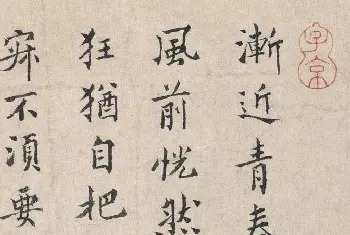 子京
漸近青春
風前恍然
狂猶自把
寂不須要